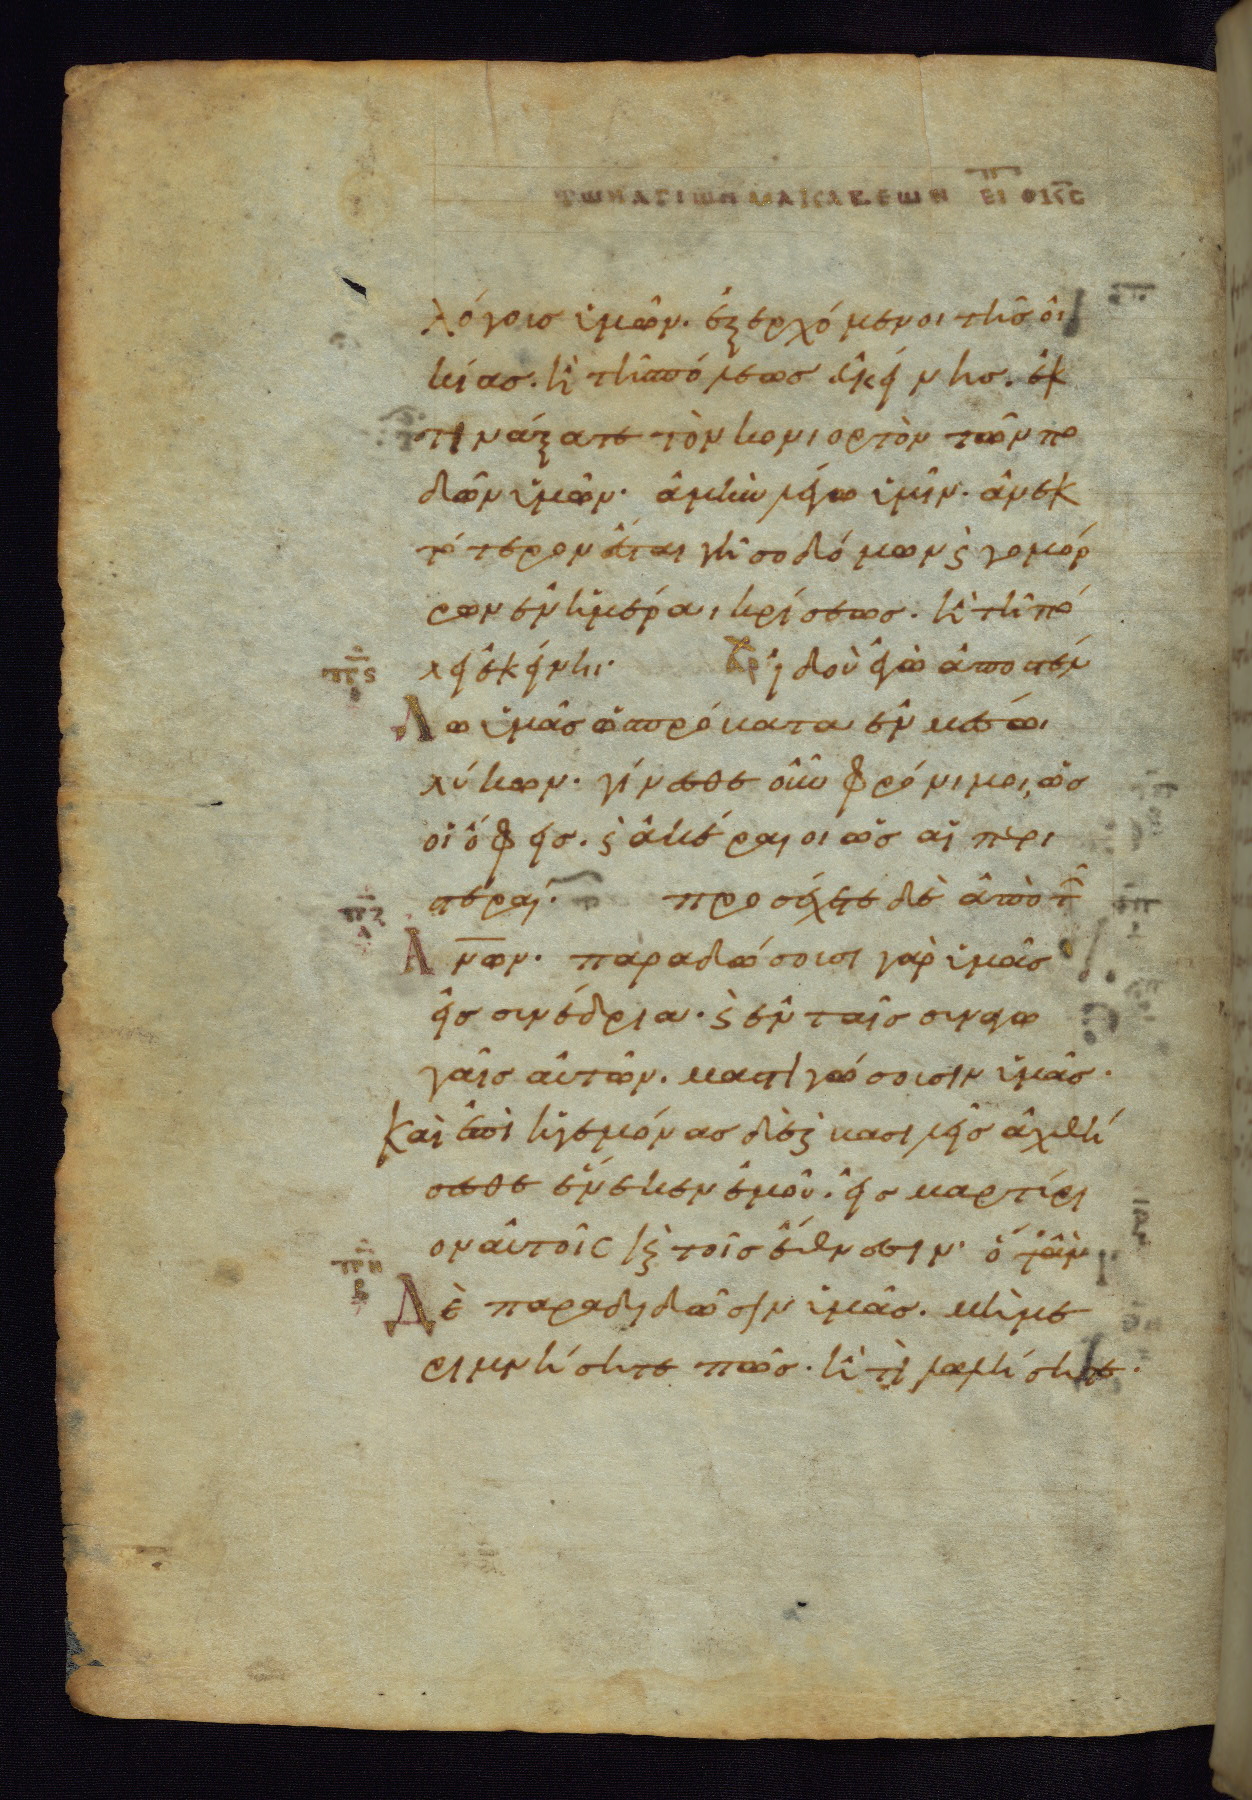 ΤΩΝ ΑΓΙΩΝ ΜΑΚΑΒΕΩΝ
λόγους ὑμῶν. ἐξερχόμενοι τῆς οἰ
κίας. ἢ τῆς πόλεως ἐκείνης. ἐκ
τινάξατε τὸν κονιορτὸν τῶν πο
δῶν ὑμῶν. ἀμὴν λέγω ὑμῖν. ἀνεκ
τότερον ἔσται γῆ σοδόμων ϛ γομόρ
ρων ἐν ἡμέραι κρίσεως. ἢ τῆ πό
λει ἐκείνηι. ἰδοὺ ἐγὼ ἀποστέλ
Λω ὑμᾶς ὡς πρόβατα ἐν μέσωι
λύκων. γίνεσθε οὖν φρόνιμοι, ὡς
οἱ ὄφεις. ϛ ἀκέραιοι ὡς αἱ περι
στεραί. προσέχετε δὲ ἀπὸ τῶν
Ανων. παραδώσουσι γὰρ ὑμᾶς
εἰς συνέδρια. ϛ ἐν ταῖς συναγω
γαῖς αὐτῶν. μαστιγώσουσιν ὑμᾶς.
Καὶ ἐπὶ ἡγεμόνας δὲ ϛ βασιλεῖς ἀχθή
σεσθε ἕνεκεν ἐμοῦ. εἰς μαρτύρι
ον αὐτοῖς ϛ τοῖς ἔθνεσιν. ὅταν
Δὲ παραδιδῶσιν ὑμᾶς. μὴ με
ριμνήσητε πῶς. ἢ τί λαλήσητε.